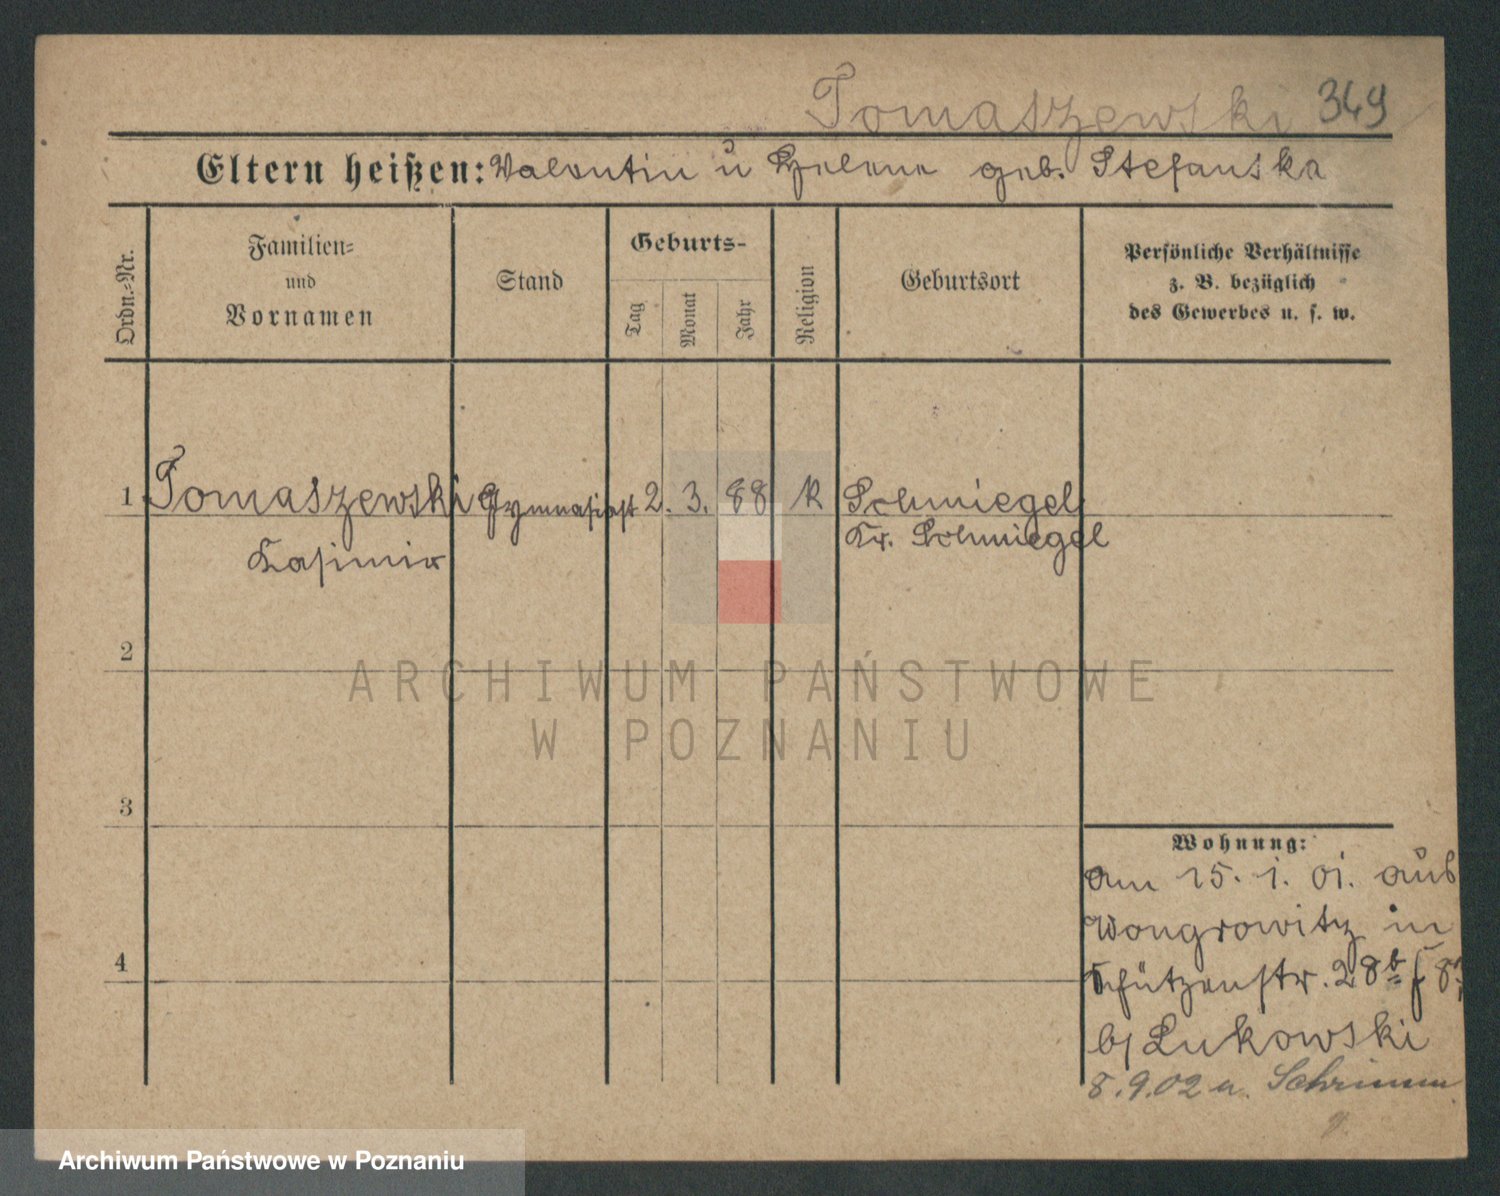 Tomaszewski 349
Eltern heißen: Valentin u Helene geb. Stefanska
Ordn.-Nr.
Familien-
und
Vornamen
Stand
Geburts-
Tag
Monat
Jahr
Religion
Geburtsort
Persönliche Verhältnisse
z. B. bezüglich
des Gewerbes u. s. w.
1 Tomaszewski Gymnasiast 2. 3. 88 K Schmiegel
Kasimir Kr. Schmiegel
2
3
4
Wohnung:
Am 15. 1. 01. aus
Wongrowitz in
Schützenstr. 28b
b/ Lukowski
8.9.02 n. Schrimm
ARCHIWUM PAŃSTWOWE
W POZNANIU
Archiwum Państwowe w Poznaniu